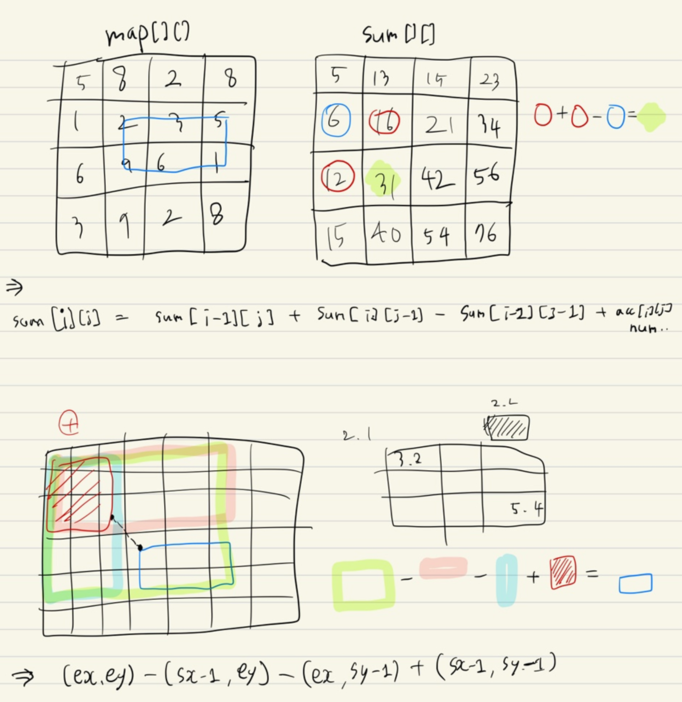 map[][]
5 8 2 8
1 2 3 5
6 9 6 1
3 9 2 8
sum[][]
5 13 15 23
6 16 21 34
12 31 42 56
15 40 54 76
O+O-O=
⇒
sum[i][j] = sum[i-1][j] + sum[i][j-1] - sum[i-2][j-1] +
num..
+
2.1
3.2
5.4
- - + =
⇒ (ex.ey) - (sx-1, ey) - (ex, sy-1) + (sx-1, sy-1)